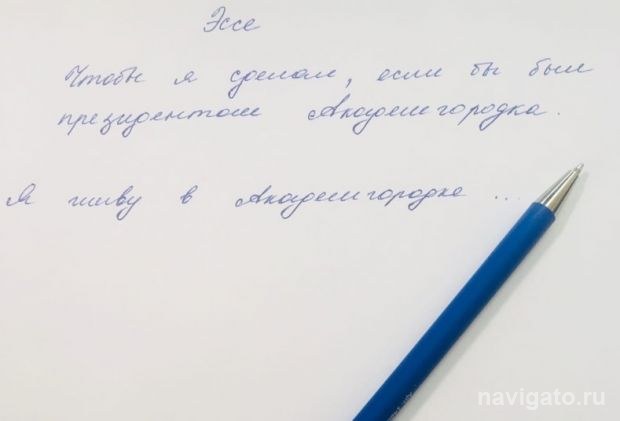 Эссе
Чтобы я сделал, если бы был
президентом Академгородка.
Я живу в Академгородке ...
navigato.ru